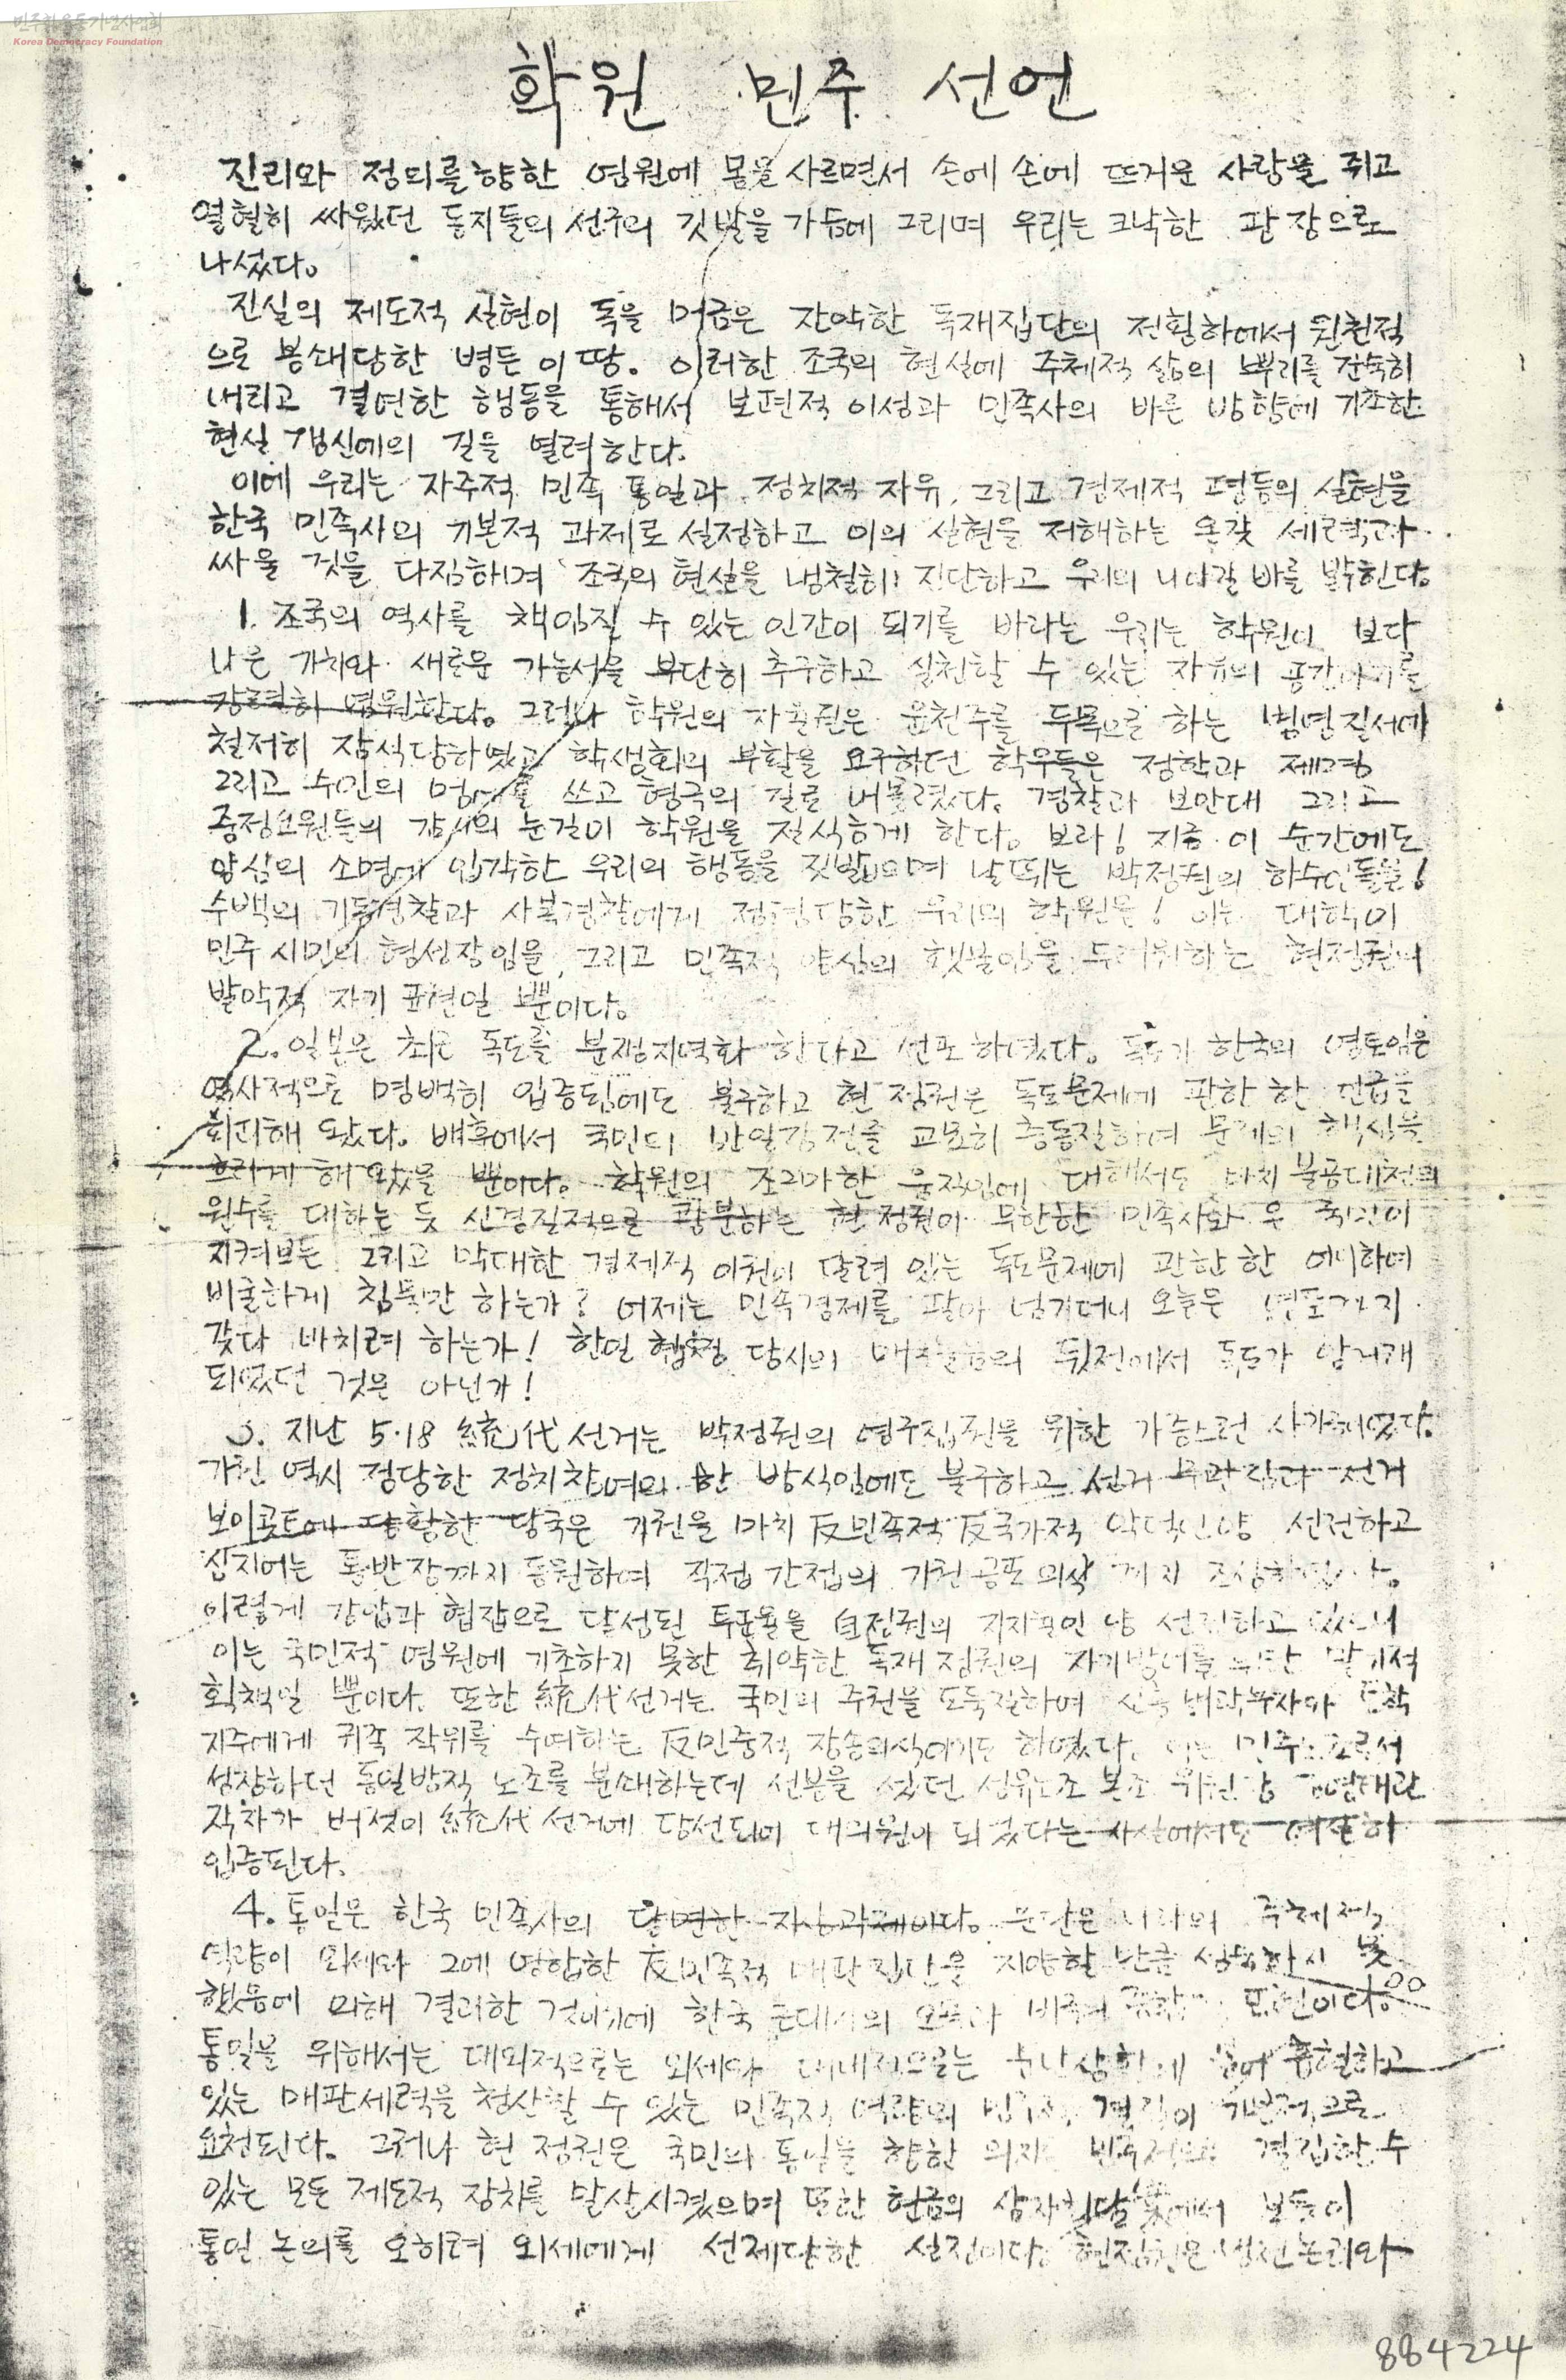 민주화운동기념사업회
Korea Democracy Foundation
학원 민주 선언
진리와 정의를 향한 염원에 몸을 사르면서 손에 손에 뜨거운 사랑을 쥐고
열혈히 싸웠던 동지들의 선구의 깃발을 가슴에 그리며 우리는 크낙한 광장으로
나섰다.
진실의 제도적 실현이 독을 머금은 잔악한 독재집단의 전횡하에서 원천적
으로 봉쇄당한 병든 이 땅. 이러한 조국의 현실에 주체적 삶의 뿌리를 깊숙히
내리고 결연한 행동을 통해서 보편적 이성과 민족사의 바른 방향에 기초한
현실 갱신에의 길을 열려 한다.
이에 우리는 자주적 민족 통일과 정치적 자유, 그리고 경제적 평등의 실현을
한국 민족사의 기본적 과제로 설정하고 이의 실현을 저해하는 온갖 세력과
싸울 것을 다짐하며 조국의 현실을 냉철히 진단하고 우리의 나아갈 바를 밝힌다.
1. 조국의 역사를 책임질 수 있는 인간이 되기를 바라는 우리는 학원이 보다
나은 가치와 새로운 가능성을 부단히 추구하고 실천할 수 있는 자유의 공간이기를
강력히 염원한다. 그러나 학원의 자율권은 윤천주를 두목으로 하는 병영질서에
철저히 잠식당하였고 학생회의 부활을 요구하던 학우들은 정학과 제명
그리고 수인의 멍에를 쓰고 형극의 길로 내몰렸다. 경찰과 보안대 그리고
중정요원들의 감시의 눈길이 학원을 질식하게 한다. 보라! 지금 이 순간에도
양심의 소명에 입각한 우리의 행동을 짓밟으며 날뛰는 박정권의 하수인들을!
수백의 기동경찰과 사복경찰에게 점령당한 우리의 학원을! 이는 대학이
민주 시민의 형성장임을, 그리고 민족적 양심의 횃불임을 두려워하는 현정권의
발악적 자기 표현일 뿐이다.
2. 일본은 최근 독도를 분쟁지역화 한다고 선포하였다. 독도가 한국의 영토임은
역사적으로 명백히 입증됨에도 불구하고 현 정권은 독도문제에 관한 한 언급을
회피해 왔다. 배후에서 국민의 반일감정을 교묘히 충동질하여 문제의 핵심을
흐리게 해 왔을 뿐이다. 학원의 조그마한 움직임에 대해서도 마치 불공대천의
원수를 대하는 듯 신경질적으로 광분하는 현 정권이 무한한 민족사와 온 국민이
지켜보는 그리고 막대한 경제적 이권이 달려 있는 독도문제에 관한 한 어이하여
비굴하게 침묵만 하는가? 어제는 민족경제를 팔아 넘기더니 오늘은 영토까지
갖다 바치려 하는가! 한일 협정 당시의 뒷전에서 독도가 암거래
되었던 것은 아닌가!
3. 지난 5·18 統代 선거는 박정권의 영구집권을 위한 가증스런 사기극이었다.
기권 역시 정당한 정치참여의 한 방식임에도 불구하고 선거 무관심과 선거
보이콧트에 당황한 당국은 기권을 마치 反민족적 反국가적 악덕인양 선전하고
심지어는 통반장까지 동원하여 직접 간접의 기권 공포 의식까지 조성하였다.
이렇게 강압과 협잡으로 달성된 투표율을 自정권의 지지표인 양 선전하고 있으니
이는 국민적 염원에 기초하지 못한 취약한 독재 정권의 자기방어를 위한 말기적
획책일 뿐이다. 또한 統代선거는 국민의 주권을 도둑질하여 신흥 토착
지주에게 귀족 작위를 수여하는 反민중적 장송의식이기도 하였다. 이는 민주노조로서
성장하던 동일방직 노조를 분쇄하는데 선봉을 섰던 섬유노조 본조 위원장 김영태란
작자가 버젓이 統代선거에 당선되어 대의원이 되었다는 사실에서도 여실히
입증된다.
4. 통일은 한국 민족사의 당면한 지상과제이다. 분단은 나라의 주체적
역량이 외세와 그에 영합한 反민족적 매판집단을 지양할 만큼 성숙하지 못
했음에 의해 결과한 것이기에 한국 근대사의 오욕과 표현이다.
통일을 위해서는 대외적으로는 외세와 대내적으로는 분단상황에 출현하고
있는 매판세력을 청산할 수 있는 민족적 역량의 결집이 기본적으로
요청된다. 그러나 현 정권은 국민의 통일을 향한 의지를 결집할 수
있는 모든 제도적 장치를 말살시켰으며 또한 현금의 삼자회담 에서 보듯이
통일 논의를 오히려 외세에게 선제당한 실정이다. 현정권은 논리와
884224